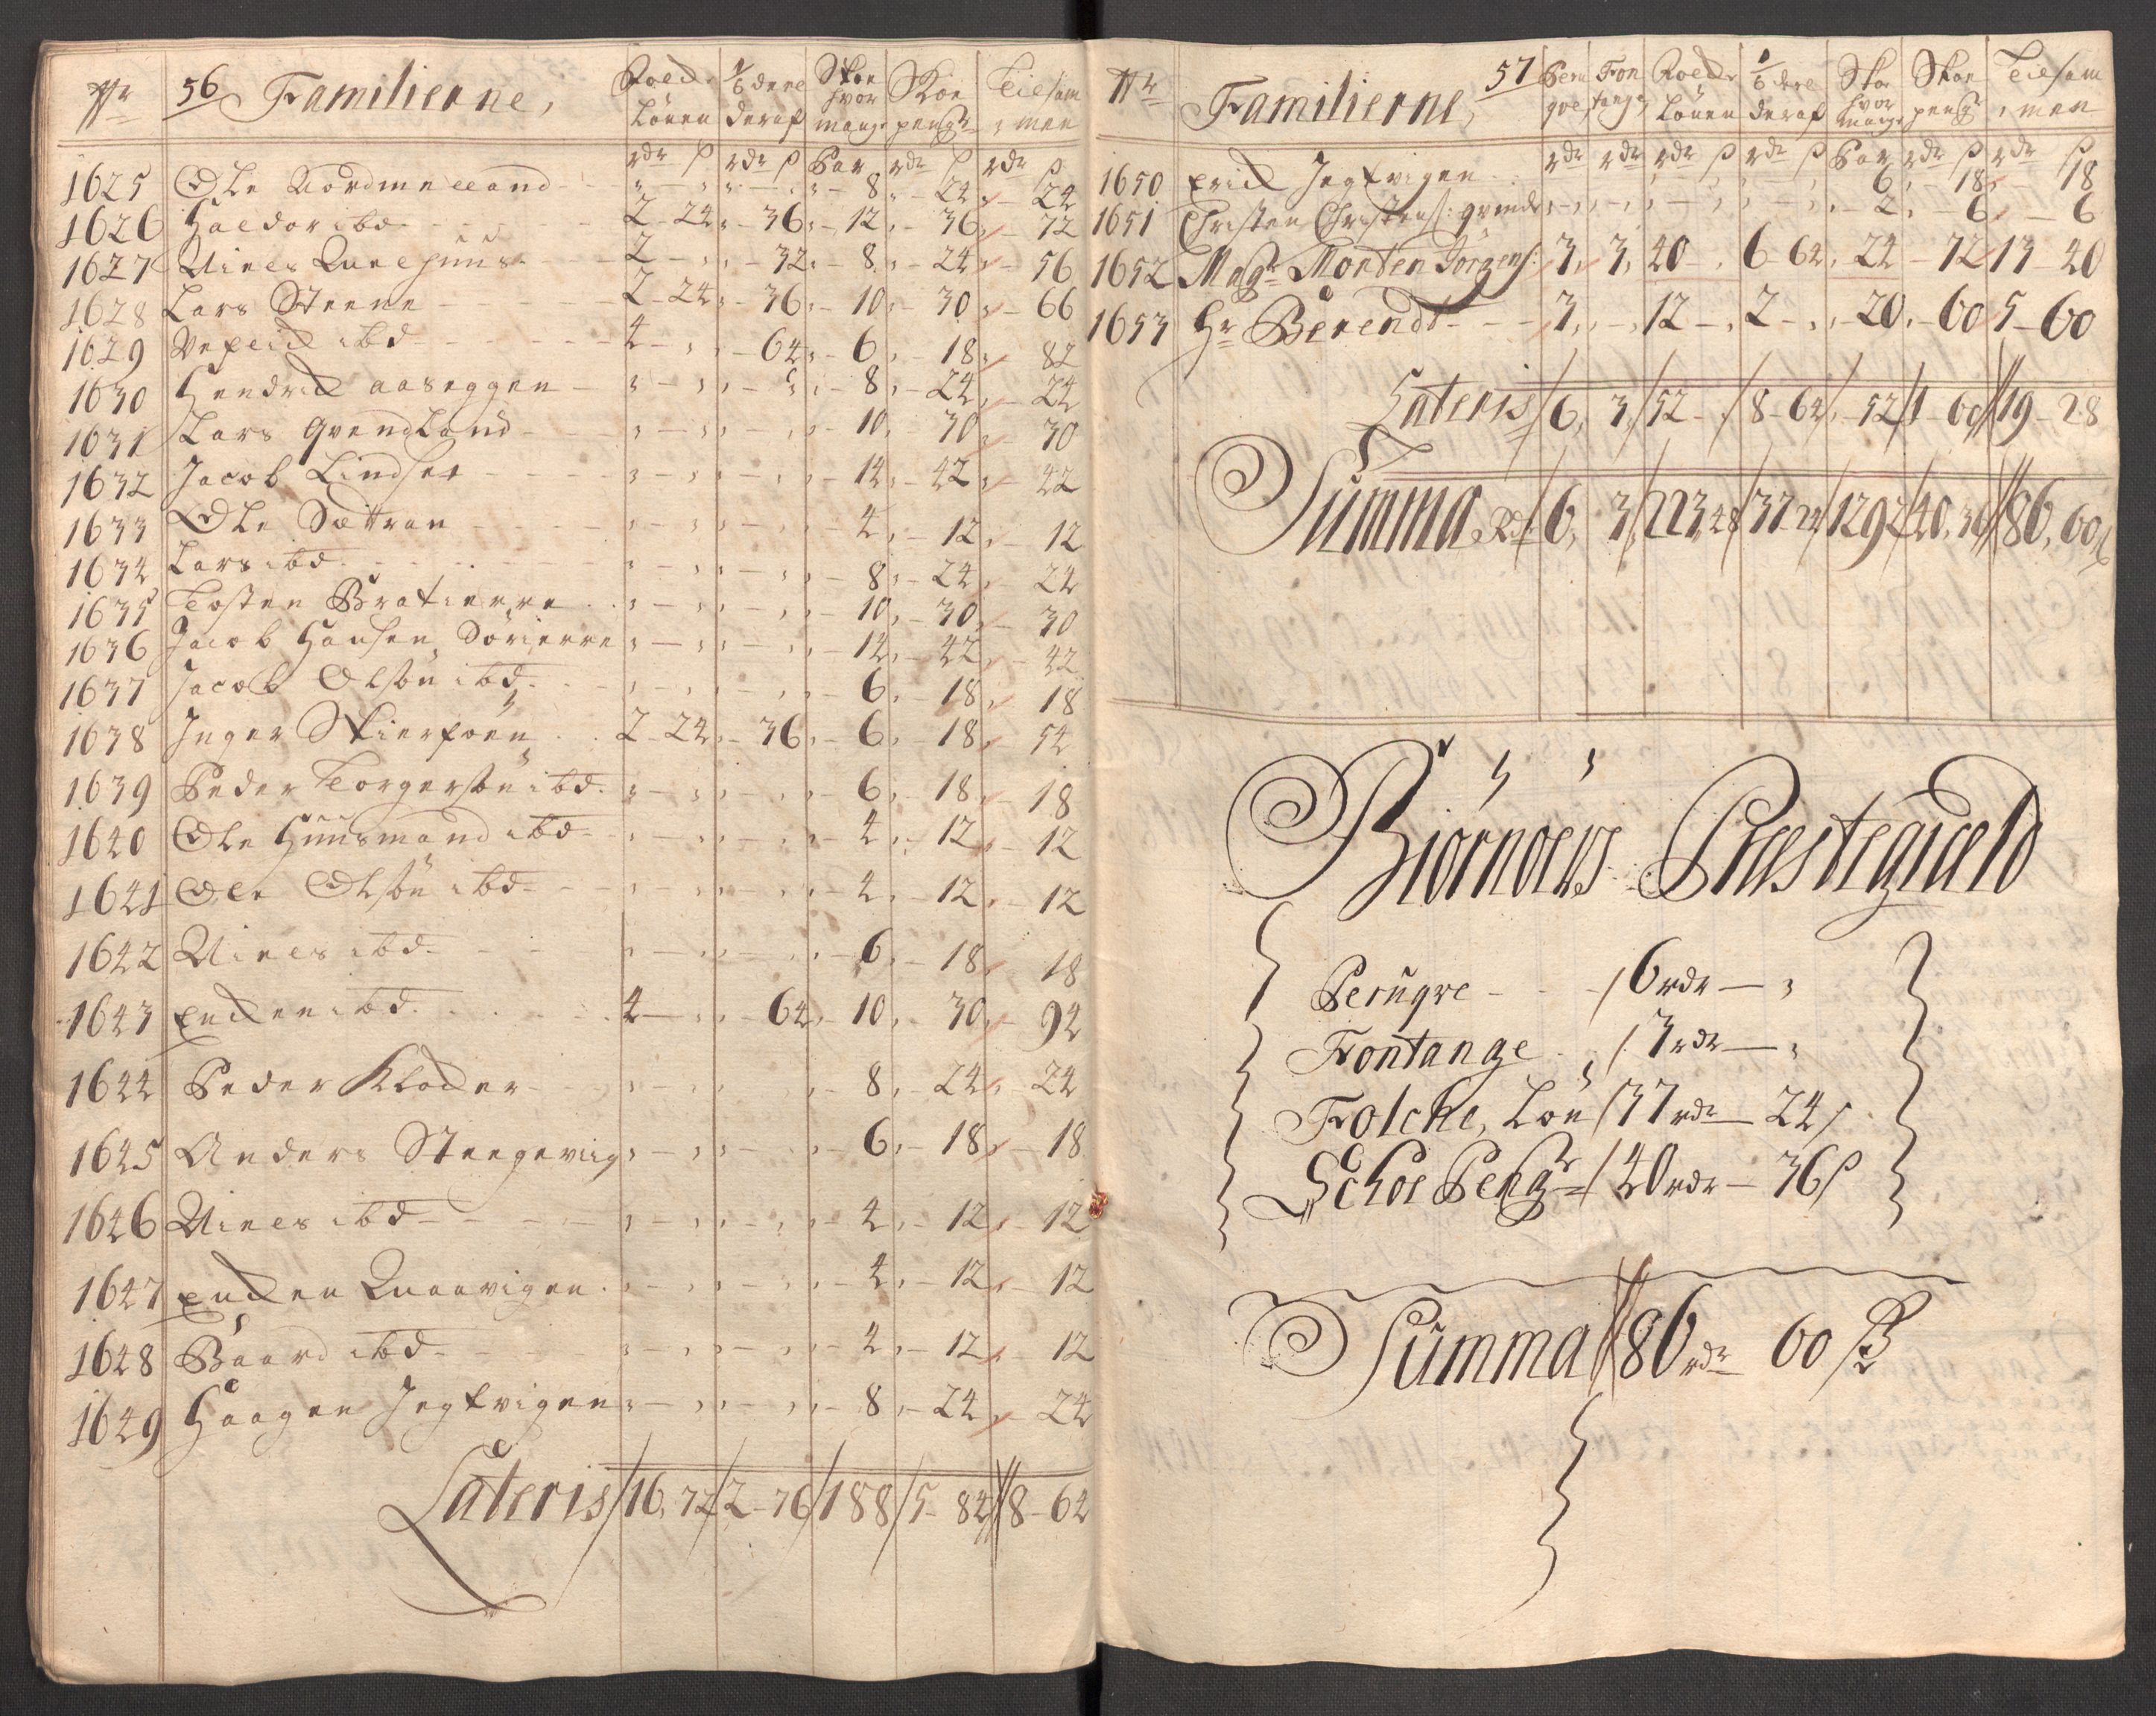 Nr 56 Familierne, Folck Lönen 1/6 dere deraf Skoe hvor mange Skoe peng Teilsam men
rdr ß rdr ß Par rdr ß rdr ß
1625 Ole Nordmelland - - 8 - 24 - 24
1626 Haldor ibd 2 - 24 - 36 - 12 - 36 - 72
1627 Niels 2 - 32 - 8 - 24 - 56
1628 Lars Steene 2 - 24 - 36 - 10 - 30 - 66
1629 ibd 4 - 64 - 6 - 18 - 82
1630 Hendrick aaseggen - 8 - 24 - 24
1631 Lars Qvendland - 10 - 30 - 30
1632 Jacob Lindset - 14 - 42 - 42
1633 Ole Sættran - 4 - 12 - 12
1634 Lars ibd - 8 - 24 - 24
1635 Tosten Bratierre - 10 - 30 - 30
1636 Jacob Hansen Sörierre - 14 - 42 - 42
1637 Jacob Olsön ibd - 6 - 18 - 18
1638 Inger Skierpöen 2 - 24 - 36 - 6 - 18 - 54
1639 Peder Torgersön ibd - 6 - 18 - 18
1640 Ole Huusmand ibd - 4 - 12 - 12
1641 Ole Olsön ibd - 4 - 12 - 12
1642 Niels ibd - 6 - 18 - 18
1643 Encken ibd 4 - 64 - 10 - 30 - 94
1644 Peder Klocker - 8 - 24 - 24
1645 Anders Steengeviig - 6 - 18 - 18
1646 Niels ibd - 4 - 12 - 12
1647 Encken Quaavigen - 4 - 12 - 12
1648 Baard ibd - 4 - 12 - 12
1649 Haagen Jegtvigen - 8 - 24 - 24
Lateris / 16, 72 / 2 - 76 / 188 / 5 - 84 // 8 - 64
Nr Familierne, 57 Peru qve Fon tange Folck Löuen 1/6 dere deraf Sko hvor mange Skoe peng Teilsam men
rdr rdr rdr ß rdr ß Par rdr ß rdr ß
1650 Erick Jegtvigen - 6 - 18 - 18
1651 Christen Christens: - 2 - 6 - 6
1652 Magr Morten Jörgens: 3, 3, 40 - 6 - 64, 24 - 72 13 - 40
1653 Hr Berendt - 3, - 12 - 2 - 20 - 60 5 - 60
Lateris / 6, 3, / 52 - / 8 - 64, - 52 / 1 - 60 // 19 - 28
Summa Rd / 6, 3, / 223, 48 / 37 24 / 1292 / 40, 36 // 86, 60 ß
Biörnoers Præstegield
Peruqve - - / 6 rdr -
Fontange / 3 rdr -
Folcke, Lön / 37 rdr - 24 ß
Schoe Peng / 40 rdr - 36 ß
Summa // 86 rdr 60 ß